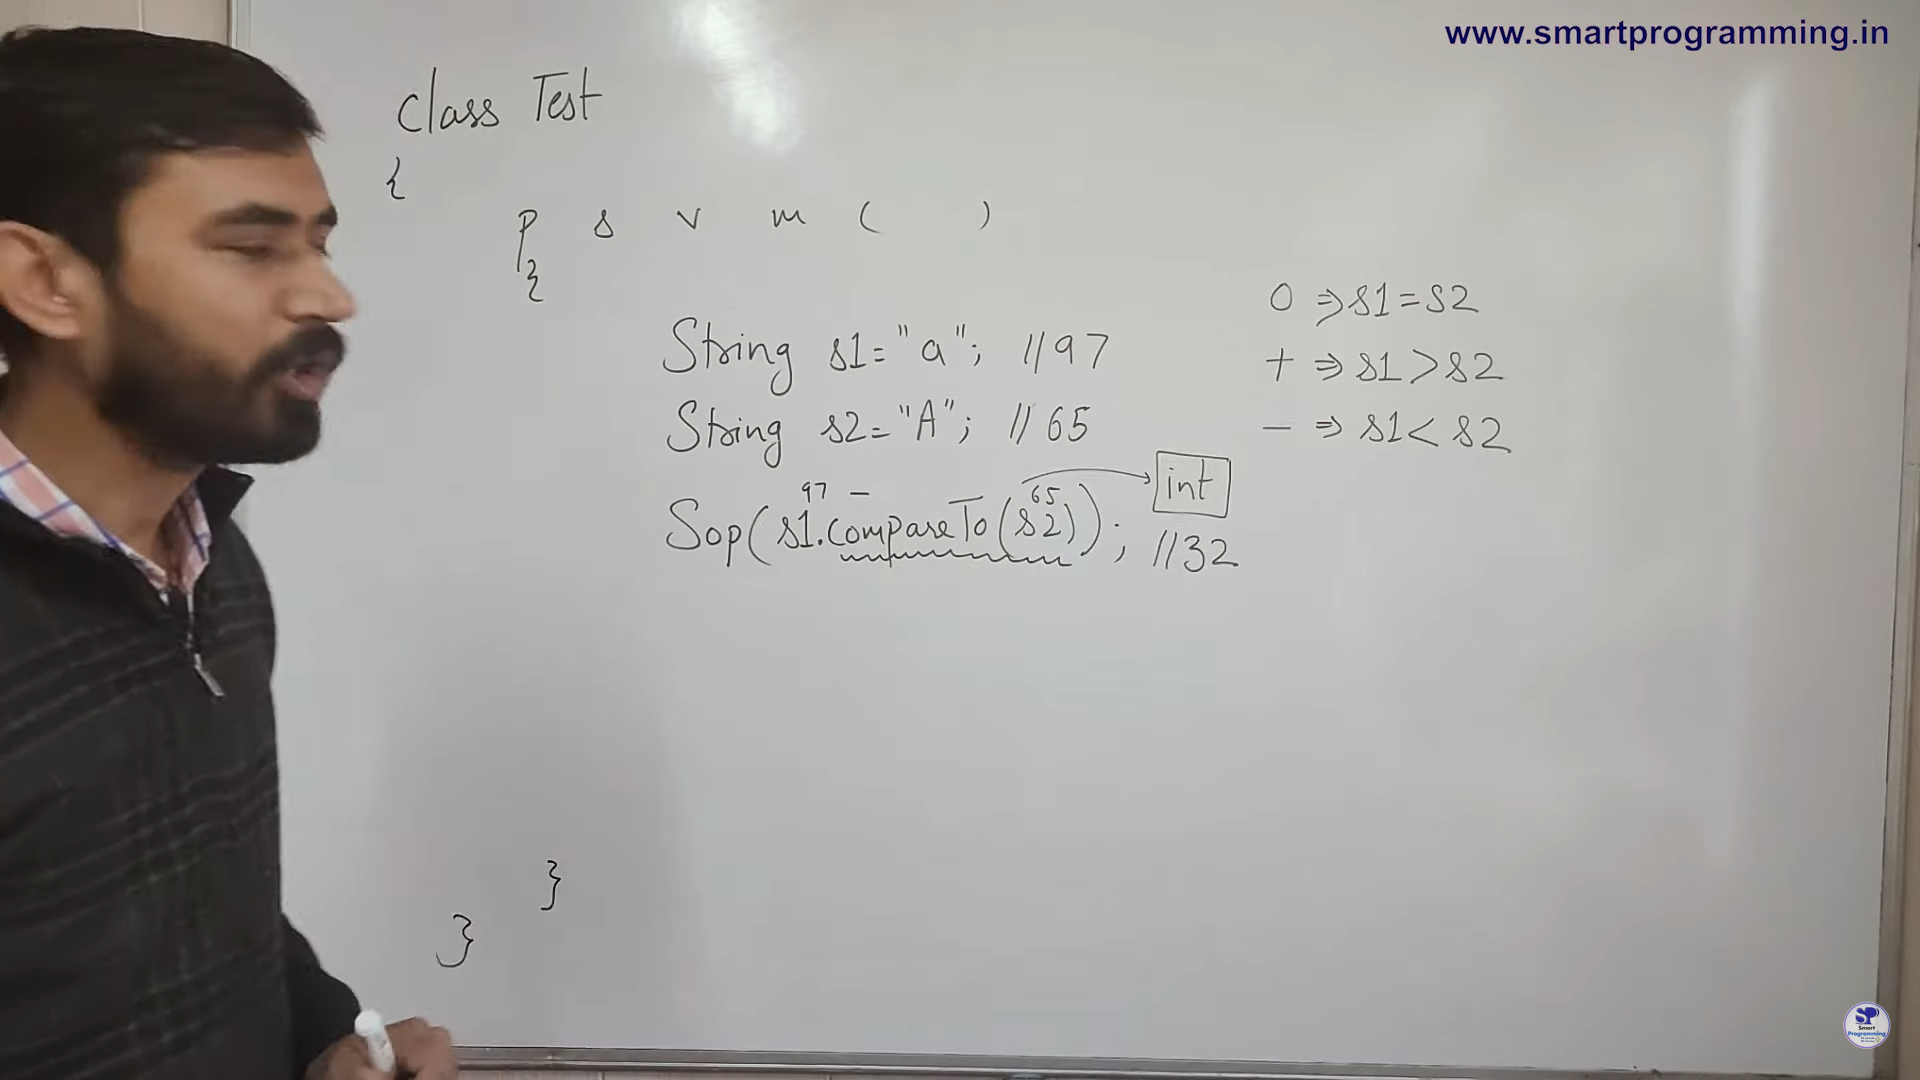 www.smartprogramming.in
Class Test
{
p s v m ( )
{
String s1="a"; //97
String s2="A"; //65
97 - 65
int
Sop(s1.compareTo(s2)); //32
}
}
0 ⇒ s1=s2
+ ⇒ s1>s2
- ⇒ s1<s2
SP
Smart
Programming